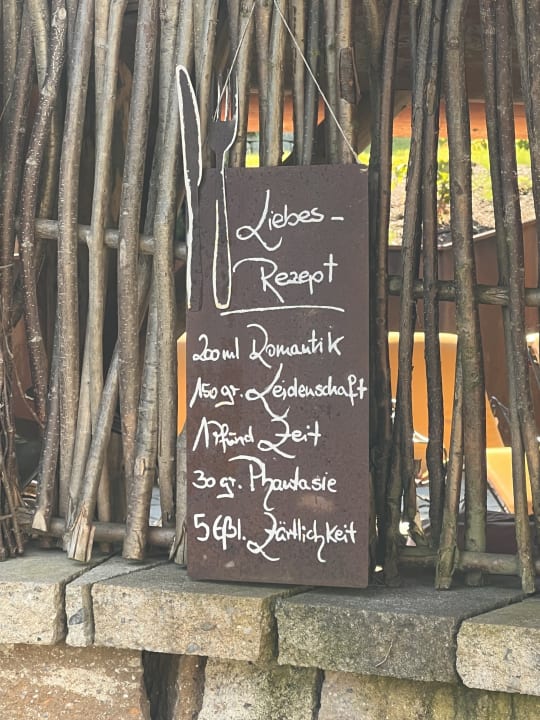 Liebes-
Rezept
200ml Romantik
150gr. Leidenschaft
1 Pfund Zeit
30gr. Phantasie
5 Eßl. Zärtlichkeit